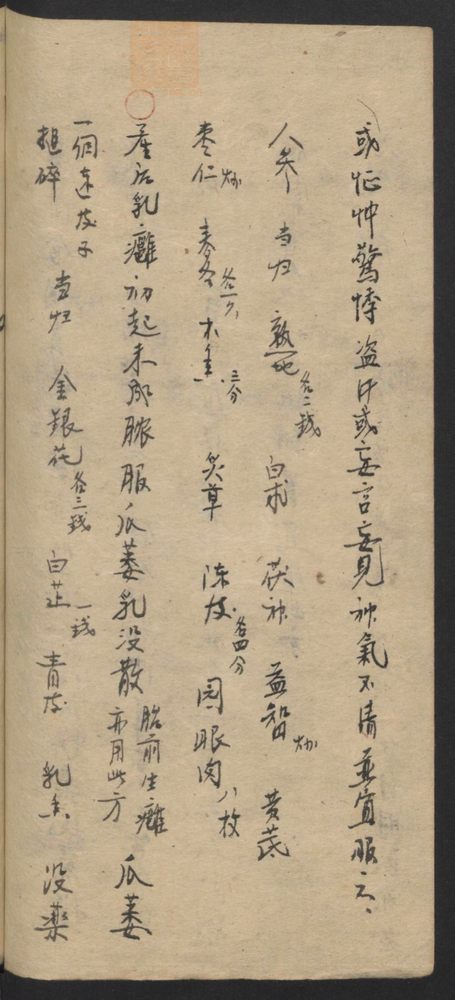 或怔忡驚悸盗汗或妄言妄見神氣不清並宜服之
人参 当归 熟地各二錢 白朮 茯神 益智炒 黄芪
枣仁炒 麦冬各一錢 木香三分 炙草 陈皮各四分 园眼肉八枚
产后乳癰初起未成膿服瓜萎乳没散 胎前生癰亦用此方 瓜萎
一個連皮子搥碎 当归 金銀花各三錢 白芷一錢 青皮 乳香 没藥